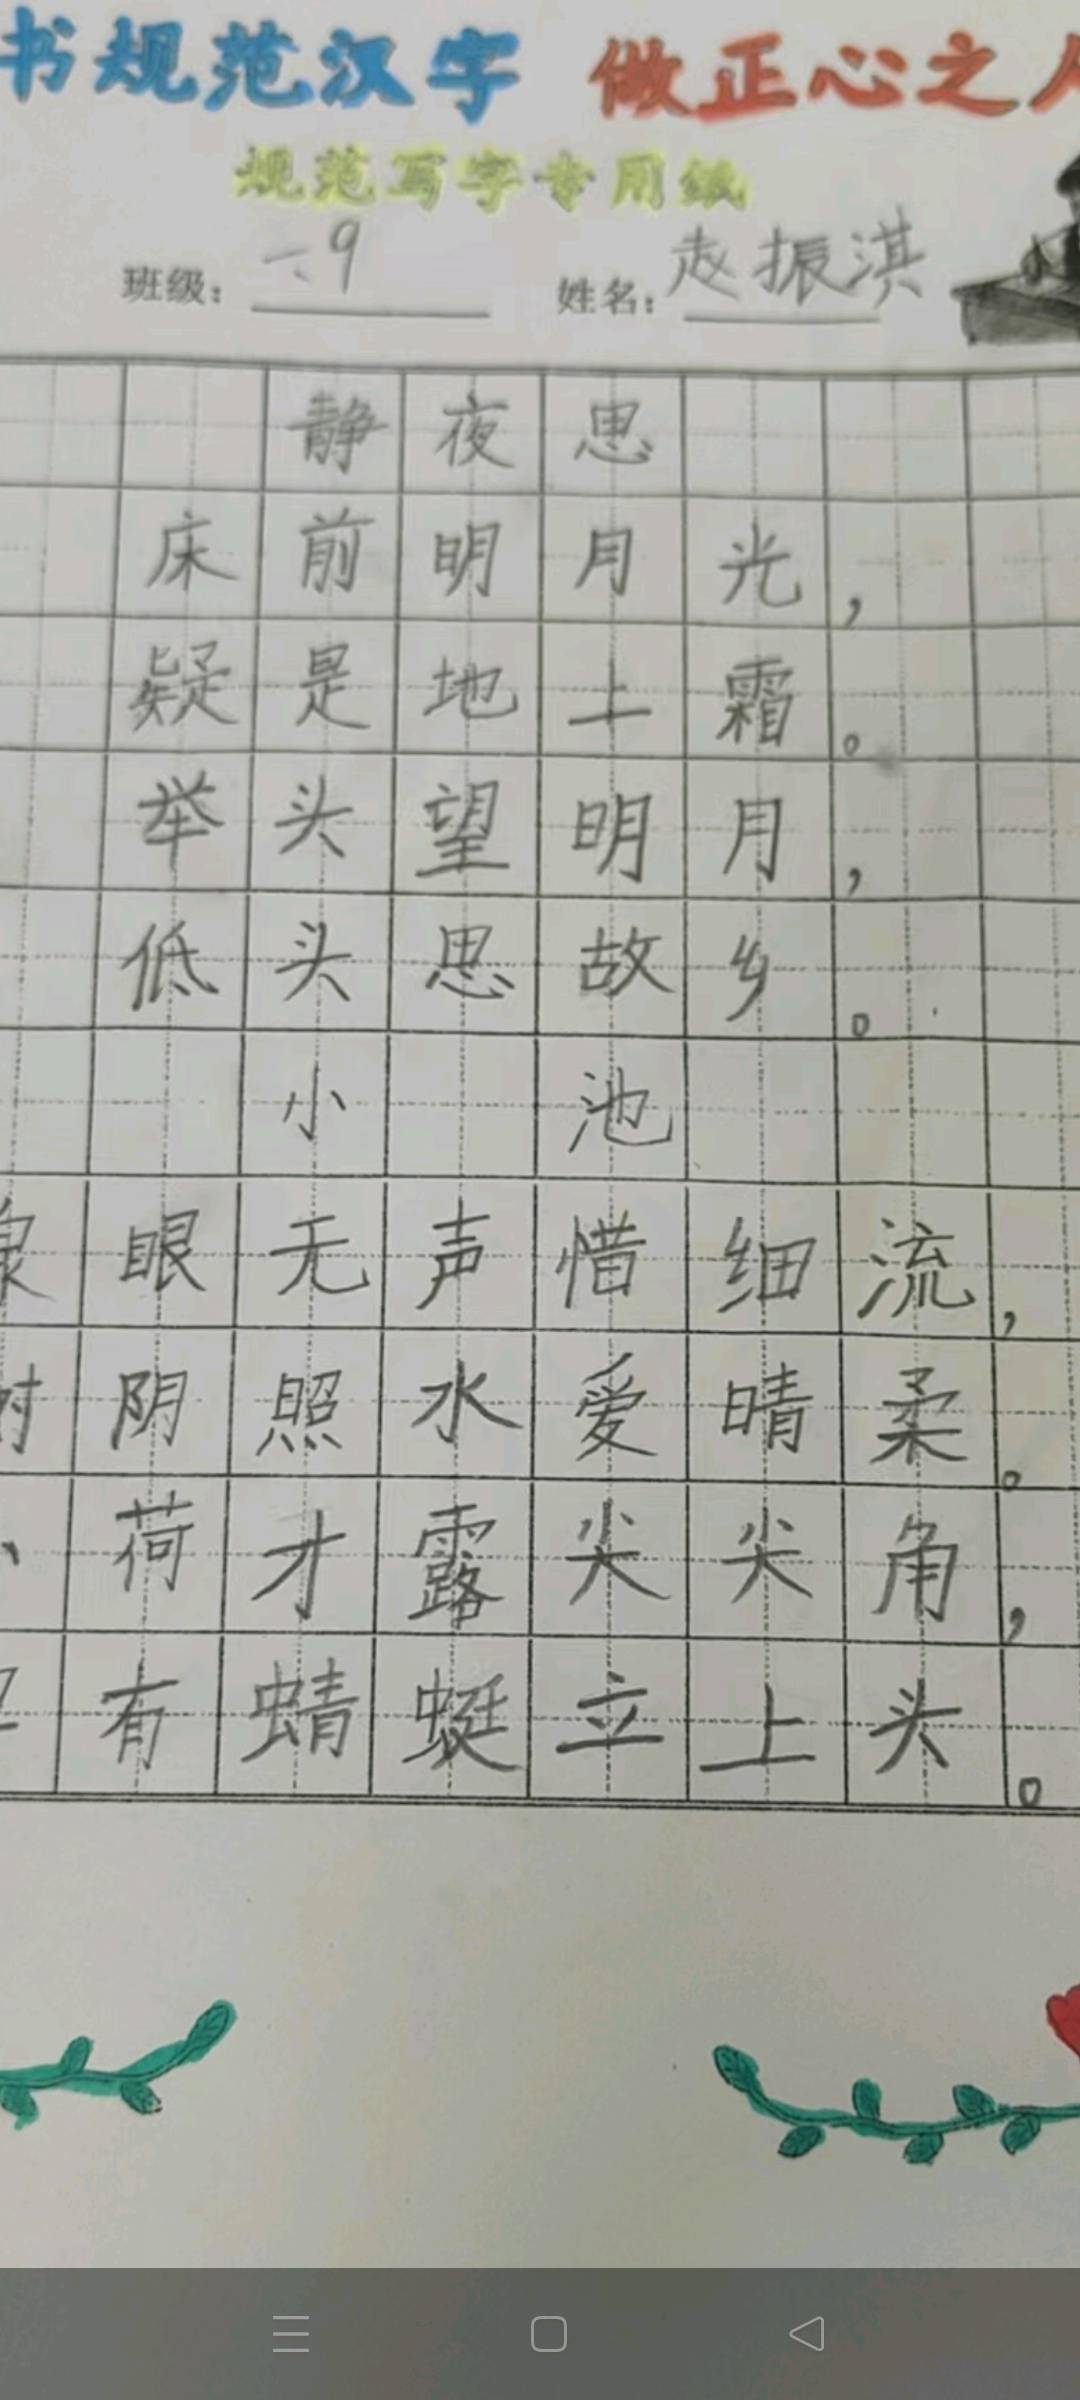 书规范汉字 做正心之人
规范写字专用纸
班级: 一.9 姓名: 赵振淇
静夜思
床前明月光,
疑是地上霜。
举头望明月,
低头思故乡。
小 池
泉眼无声惜细流,
树阴照水爱晴柔。
荷才露尖尖角,
有蜻蜓立上头。